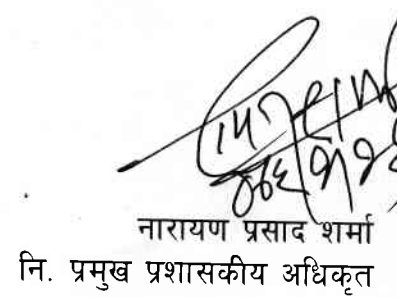 नारायण प्रसाद शर्मा
नि. प्रमुख प्रशासकीय अधिकृत